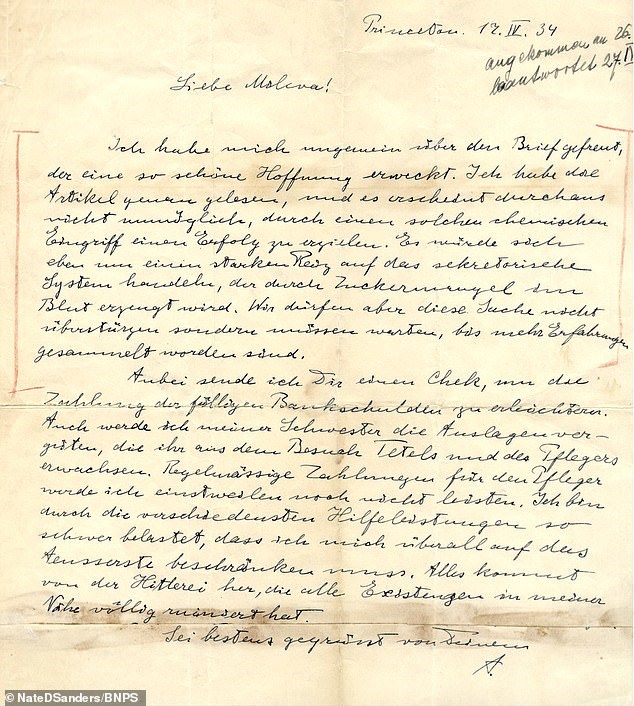 Princeton. 17. IV. 34
angekommen am 26.
beantwortet 27. IV
Liebe Mileva!
Ich habe mich ungemein über den Brief gefreut,
der eine so schöne Hoffnung erweckt. Ich habe die
Artikel genau gelesen, und es erscheint durchaus
nicht unmöglich, durch einen solchen chemischen
Eingriff einen Erfolg zu erzielen. Es würde sich
eben um einen starken Reiz auf das sekretorische
System handeln, der durch Zuckermangel im
Blut erzeugt wird. Wir dürfen aber diese Sache nicht
überstürzen sondern müssen warten, bis mehr Erfahrungen
gesammelt worden sind.
Anbei sende ich Dir einen Chek, um die
Zahlung der fälligen Bankschulden zu erleichtern.
Auch werde ich meiner Schwester die Auslagen ver-
güten, die ihr aus dem Besuch Tetels und des Pflegers
erwachsen. Regelmässige Zahlungen für den Pfleger
werde ich einstweilen noch nicht leisten. Ich bin
durch die verschiedensten Hilfeleistungen so
schwer belastet, dass ich mich überall auf das
Aeusserste beschränken muss. Alles kommt
von der Hitlerei her, die alle Existenzen in meiner
Nähe völlig ruiniert hat.
Sei bestens gegrüsst von Deinem
A.
© NateDSanders/BNPS